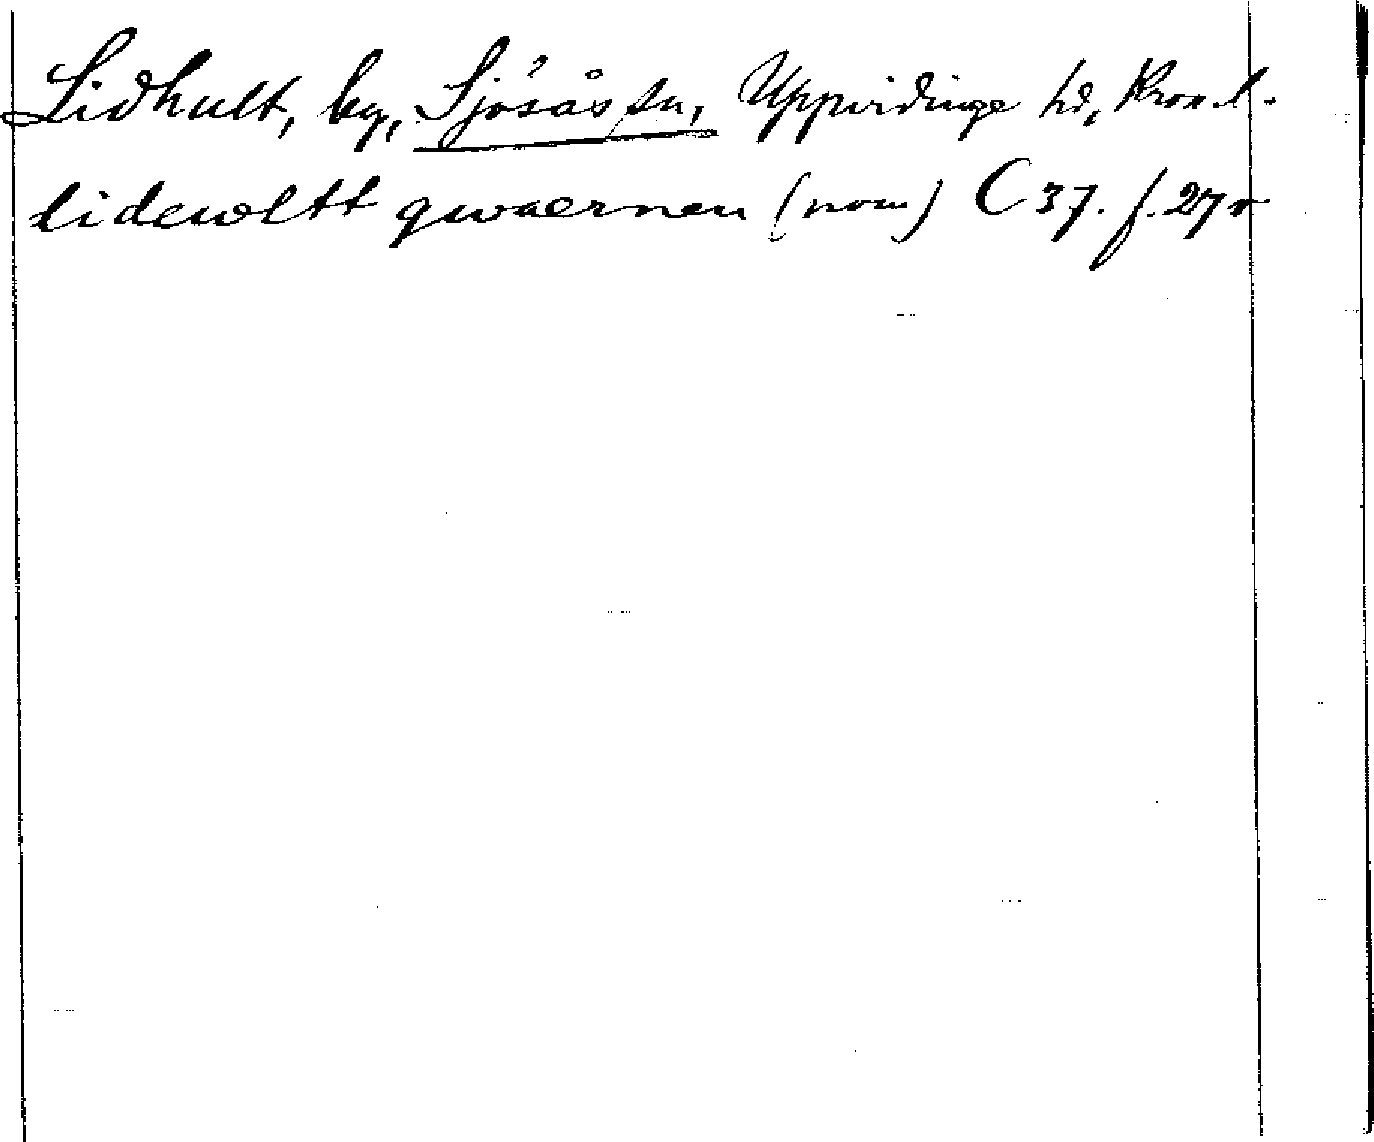 Lidhult, by, Sjösås sn, Uppvidinge hd, Kron.l.
lidewltt qwaernen (nom) C 37. f. 27 r